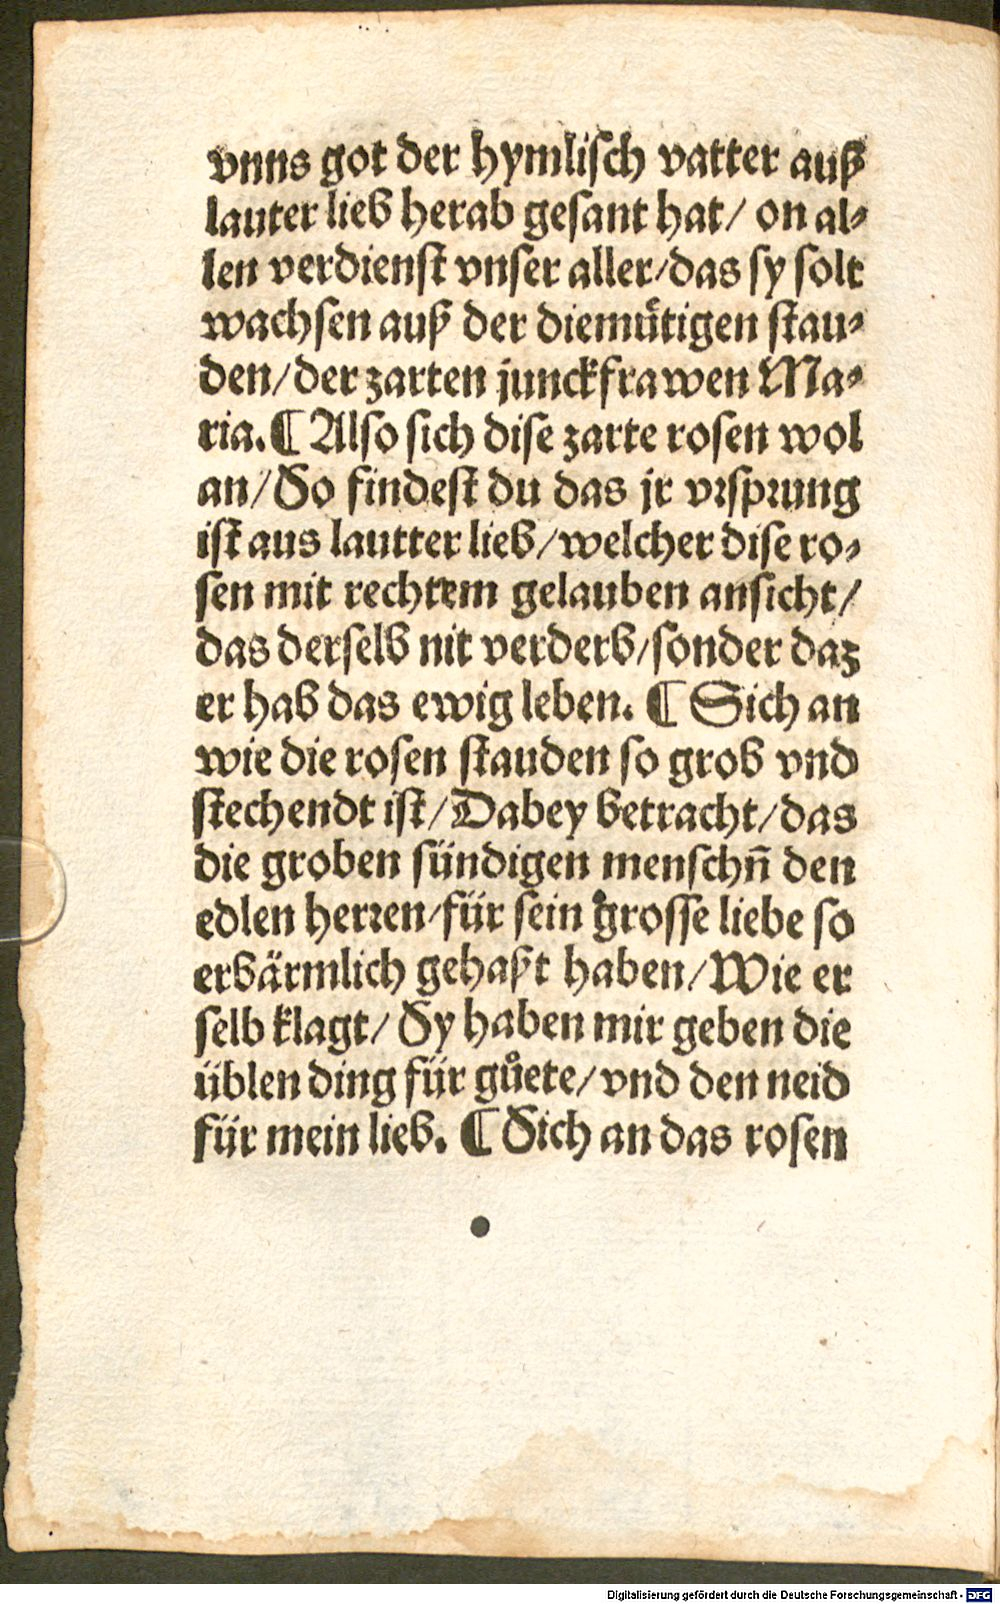 vnns got der hymlisch vatter auß
lauter lieb herab gesant hat/ on al⸗
len verdienst vnser aller/das sy solt
wachsen auß der diemuͤtigen stau⸗
den/der zarten junckfrawen Ma⸗
ria.¶ Also sich dise zarte rosen wol
an/So findest du das jr vrsprung
ist aus lautter lieb/welcher dise ro⸗
sen mit rechtem gelauben ansicht/
das derselb nit verderb/sonder daz
er hab das ewig leben. ¶ Sich an
wie die rosen stauden so grob vnd
stechendt ist/Dabey betracht/das
die groben sündigen menschn̄ den
edlen herren/für sein grosse liebe so
erbärmlich gehaßt haben/Wie er
selb klagt/ Sy haben mir geben die
üblen ding für gůete/vnd den neid
für mein lieb. ¶ Sich an das rosen
Digitalisierung gefördert durch die Deutsche Forschungsgemeinschaft - DFG